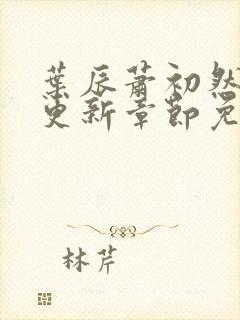 葉辰蕭初然
更新章節免
林芹